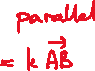 parallel
= k \overrightarrow{AB}